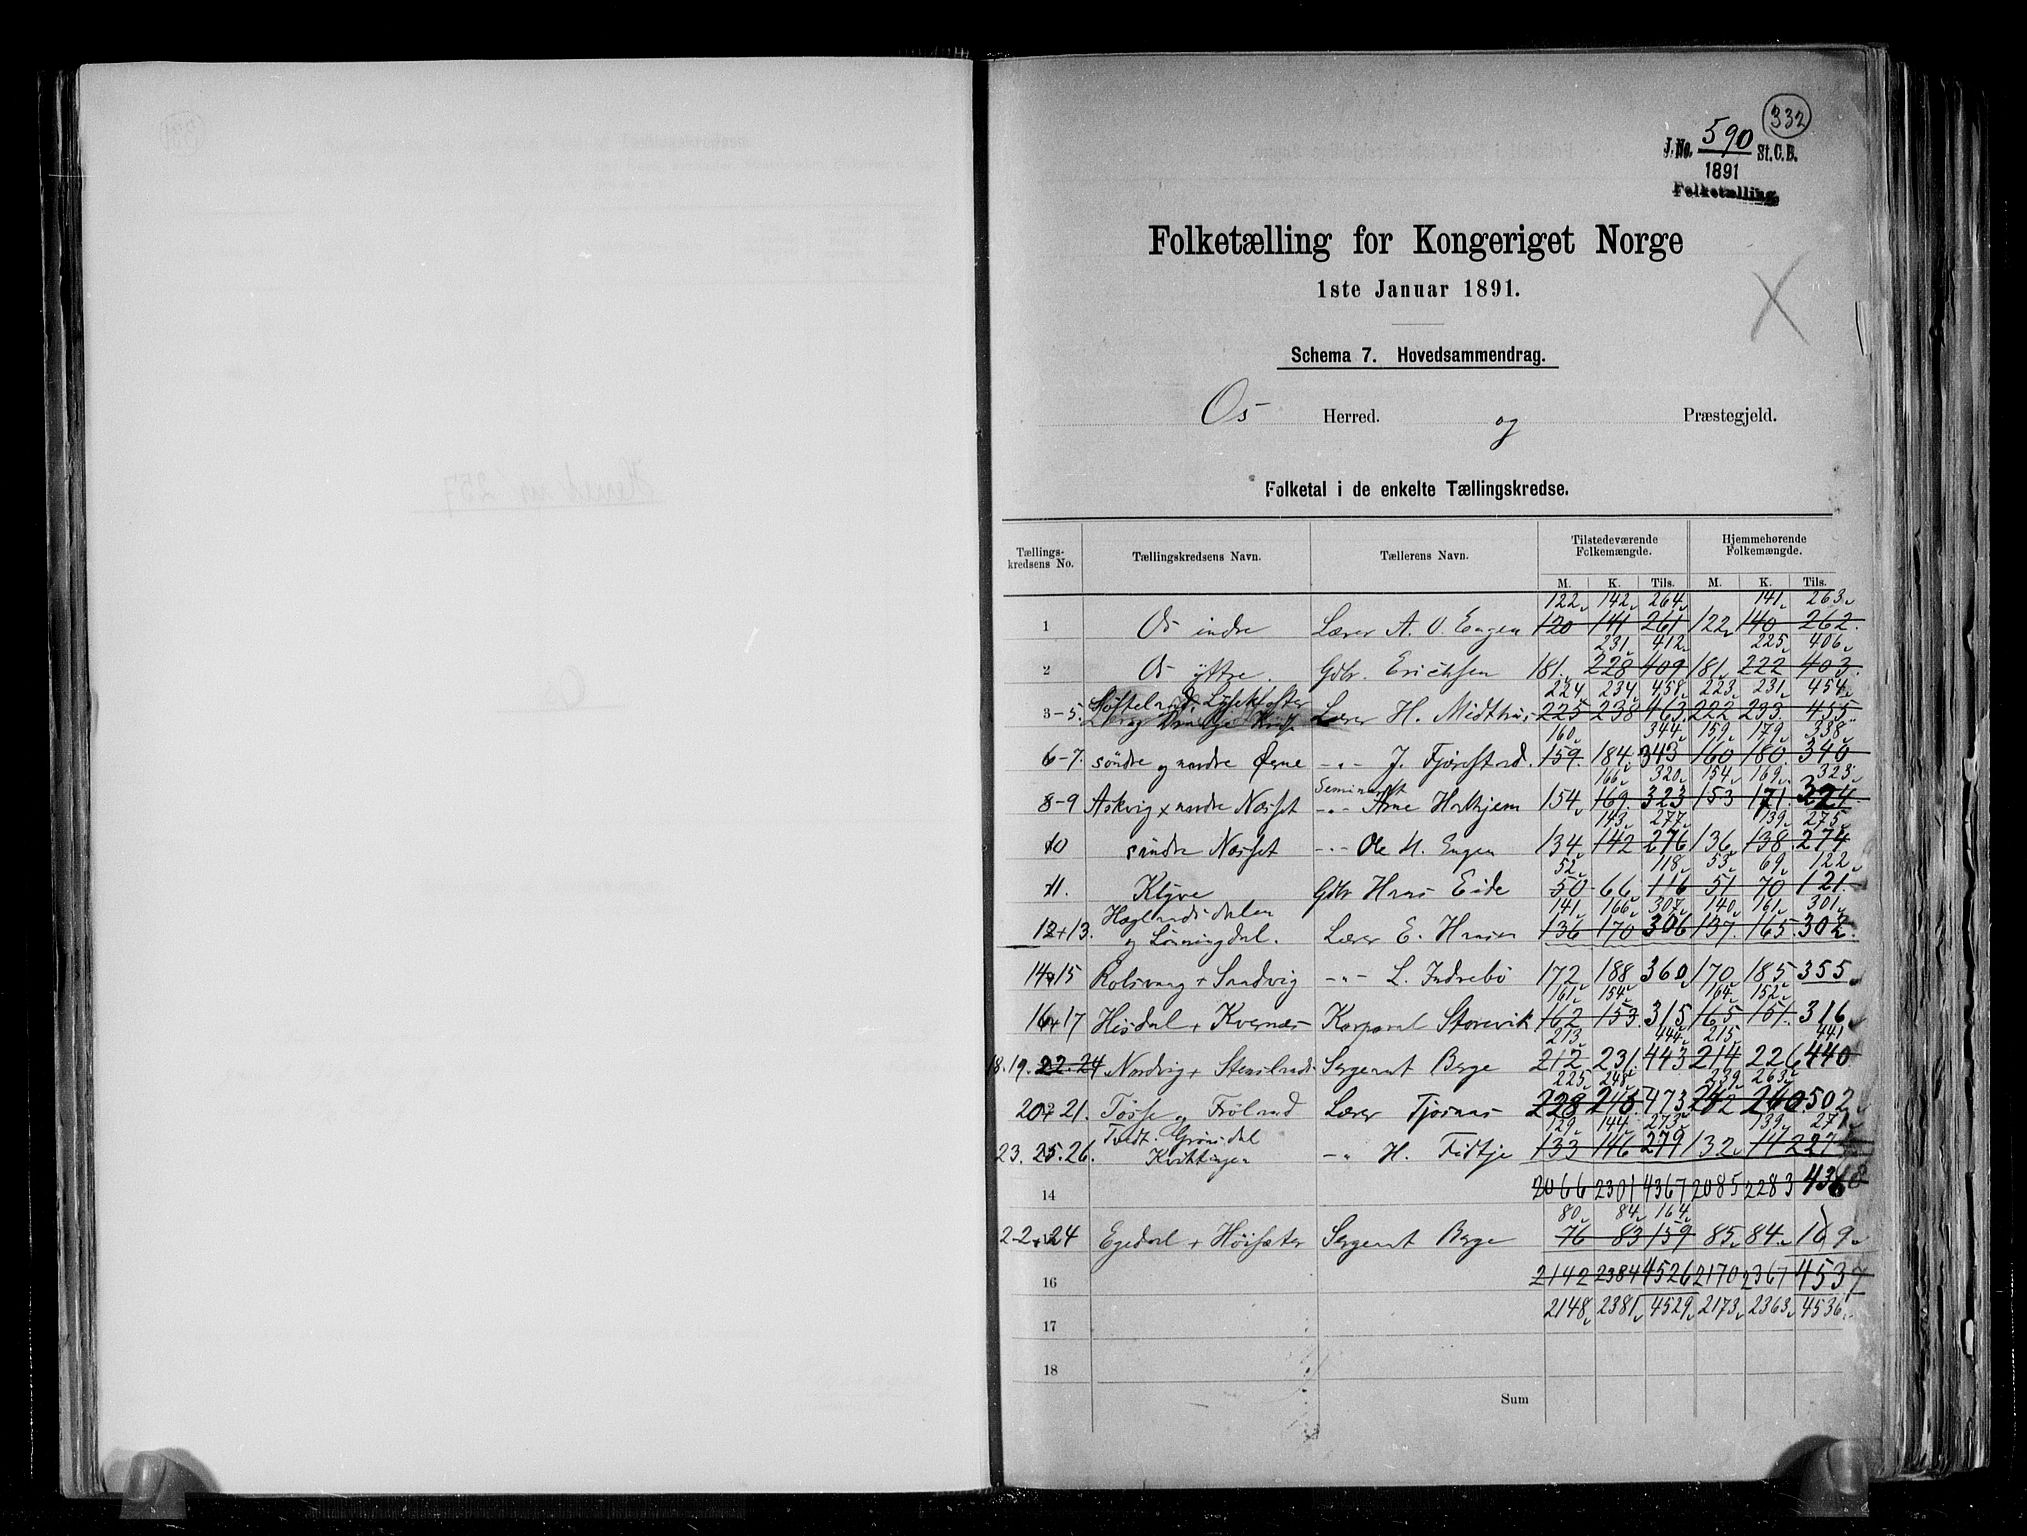 332
J. No. 590 St. C. B.
1891
Folketælling
Folketælling for Kongeriget Norge
1ste Januar 1891.
Schema 7. Hovedsammendrag.
Os Herred. og Præstegjeld.
Folketal i de enkelte Tællingskredse.
Tællings-kredsens No. Tællingskredsens Navn. Tællerens Navn. Tilstedeværende Folkemængde. Hjemmehørende Folkemængde.
M. K. Tils. M. K. Tils.
122 142 264 141 263
1 Os indre Lærer A. O. Engen 120 141 261 122 140 262
231 412 225 406
2 Os yttre. Gdbr. Erichsen 181 228 409 181 222 403
224 234 458 223 231 454
3-5. Lærer H. Midthus 225 238 463 222 233 455
160 344 159 179 338
6-7. søndre og nordre Øerne -"- J. Fjæreståd. 159 184 343 160 180 340
Seminarist 166 320 154 169 323
8-9 Askvig + nordre Næsset -"- Arne Holthjem 154 169 323 153 171 324
143 277 139 275
10 søndre Næsset -"- Ole H. Engen 134 142 276 136 138 274
52 118 53 69 122
11. Klyve Gdbr Hans Eide 50 66 116 51 70 121
141 166 307 140 161 301
12+13. Hæglandsdalen og Lønningdal. Lærer E. Hansen 136 170 306 137 165 302
14+15 Rolsvaag + Sandvig -"- L. Indrebø 172 188 360 170 185 355
161 154 164 152
16+17 Hisdal + Kvernæs Korporal Storevik 162 153 315 165 151 316
213 444 215 441
18. 19. 22-24 Nordvig + Sergeant Berge 212 231 443 214 226 440
225 248 239 263
20+21. Tøsse og Frøland Lærer Tjørnås 228 245 473 242 260 502
129 144 273 139 271
23. 25-26. Tvedt. Grønsdal Kvittingen -"- H. Fidtje 133 146 279 132
14 2066 2301 4367 2085 2283 4368
80 84 164
22+24 Egedal + Høisæter Sergeant Berge 76 83 159 85 84 169
16 2142 2384 4526 2170 2367 4537
2148 2381 4529 2173 2363 4536
17
18
Sum